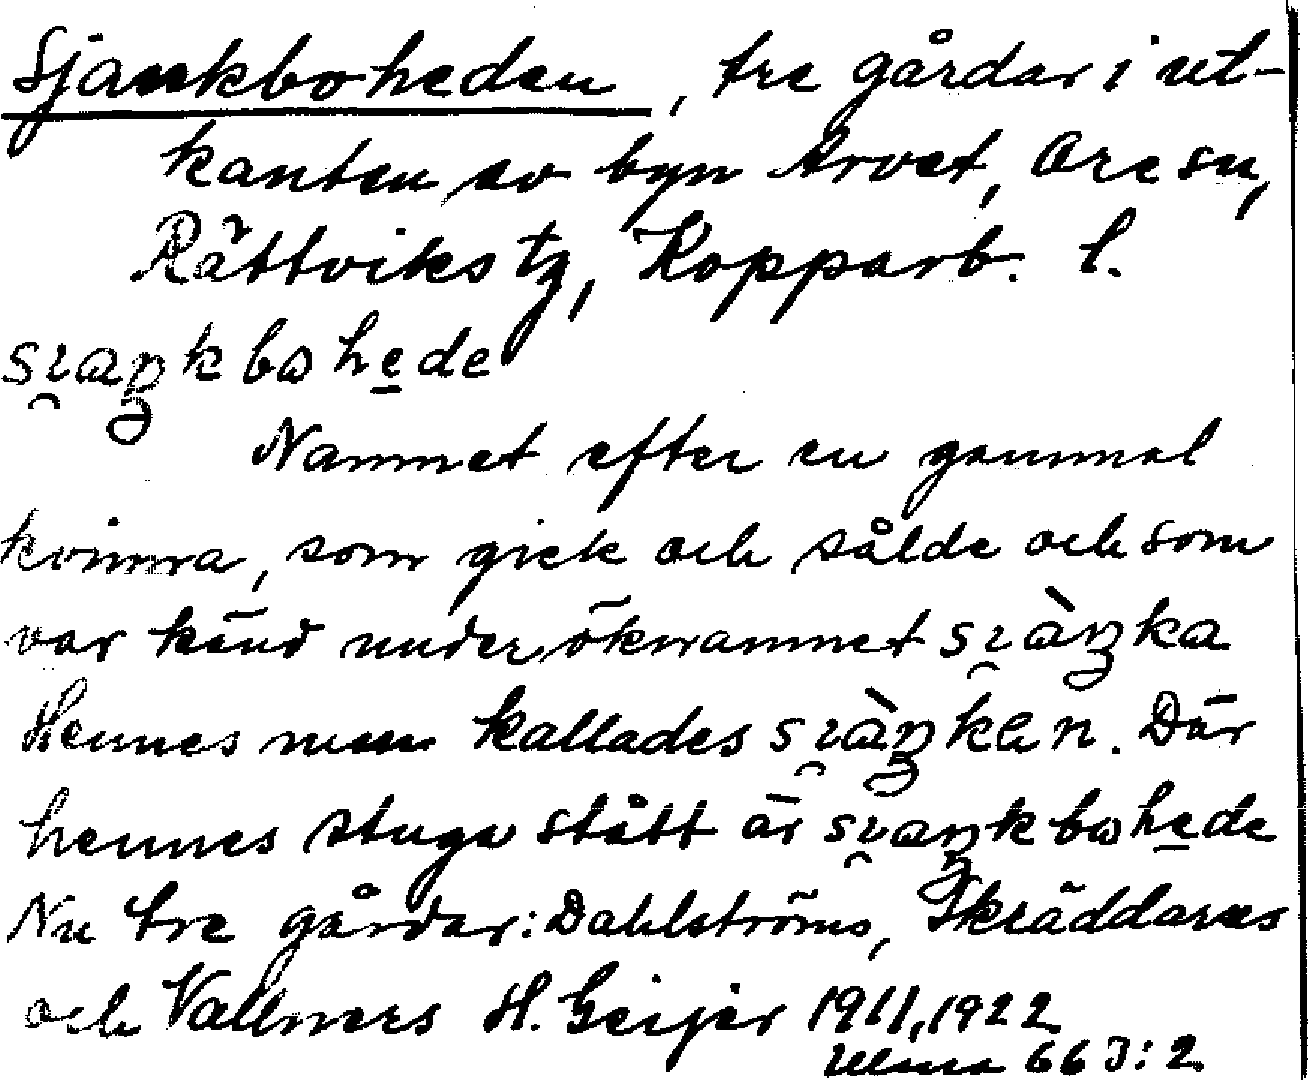 Sjankboheden, tre gårdar i ut-
kanten av byn Arvet, Ore sn,
Rättviks tg, Kopparb. l.
sı̯aŋkbohede
Namnet efter en gammal
kvinna, som gick och sålde och som
var känd under öknamnet sı̯àŋka
Hennes man kallades sı̯àŋken. Där
hennes stuga stått är sı̯aŋkbohede
Nu tre gårdar: Dahlströms, Skräddares
och Vallners H. Geijer 1911, 1922
Ulma 66 I:2